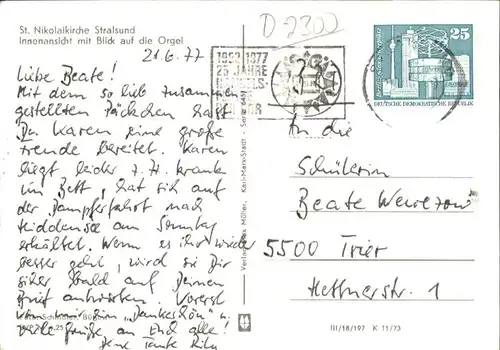 St. Nikolaikirche Stralsund
Innenansicht mit Blick auf die Orgel
D-2300
21.6.77
1952 1977
25 JAHRE
25
DEUTSCHE DEMOKRATISCHE REPUBLIK
Liebe Beate!
Mit dem so lieb zusammen
gestellten Päckchen hast
Du Karen eine große
Freude bereitet. Karen
liegt leider z. Zt. krank
im Bett, hat sich auf
der Dampferfahrt nach
Hiddensee am Sonntag
erkältet. Wenn es ihr wieder
besser geht, wird sie Dir
sicher bald auf Deinen
Brief antworten. Vorerst
von mir ein "Dankeschön" u.
viele Grüße an Euch alle!
Deine Tante
Karl-Marx-Stadt
An die
Schülerin
Beate
5500 Trier
Hettnerstr. 1
III/18/197 K 11/73